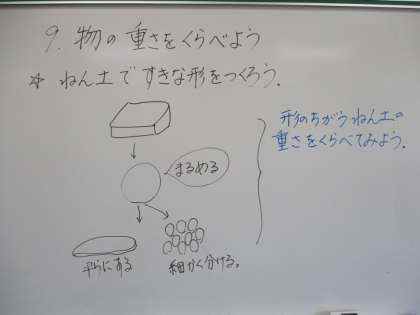 9. 物の重さをくらべよう
☆ ねん土ですきな形をつくろう.
形のちがうねん土の
重さをくらべてみよう.
まるめる
平らにする
細かく分ける。